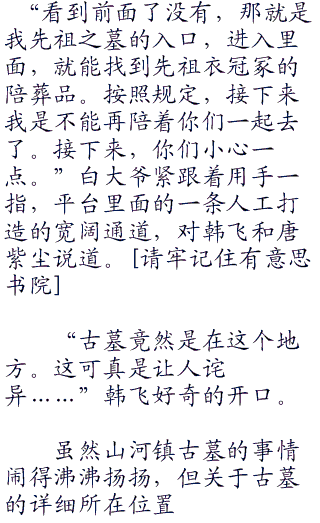 “看到前面了没有，那就是
我先祖之墓的入口，进入里
面，就能找到先祖衣冠冢的
陪葬品。按照规定，接下来
我是不能再陪着你们一起去
了。接下来，你们小心一
点。”白大爷紧跟着用手一
指，平台里面的一条人工打
造的宽阔通道，对韩飞和唐
紫尘说道。[请牢记住有意思
书院]
“古墓竟然是在这个地
方。这可真是让人诧
异……”韩飞好奇的开口。
虽然山河镇古墓的事情
闹得沸沸扬扬，但关于古墓
的详细所在位置